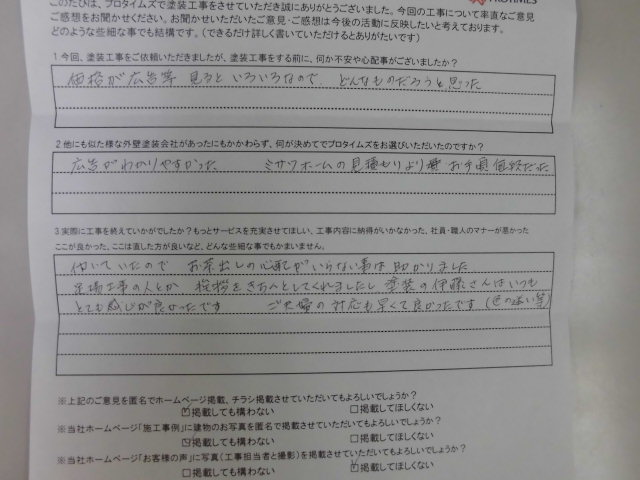 PROTIMES
このたびは、プロタイムズで塗装工事をさせていただき誠にありがとうございました。今回の工事について率直なご意見
ご感想をお聞かせください。お聞かせいただいたご意見・ご感想は今後の活動に反映したいと考えております。
どのような些細な事でも結構です。(できるだけ詳しく書いていただけるとありがたいです)
1 今回、塗装工事をご依頼いただきましたが、塗装工事をする前に、何か不安や心配事がございましたか?
価格が広告等 見ると いろいろなので どんなものだろうと思った
2 他にも似た様な外壁塗装会社があったにもかかわらず、何が決めてでプロタイムズをお選びいただいたのですか?
広告がわかりやすかった ミサワホームの見積もりより お手頃価格だった
3 実際に工事を終えていかがでしたか?もっとサービスを充実させてほしい、工事内容に納得がいかなかった、社員・職人のマナーが悪かった
ここが良かった、ここは直した方が良いなど、どんな些細な事でもかまいません。
働いていたので お茶出しの心配がいらない事は 助かりました
足場工事の人とか 挨拶をきちんとしてくれましたし 塗装の伊藤さんはいつも
とても感じが良かったです ご夫婦の対応も早くて良かったです (色の違い等)
※上記のご意見を匿名でホームページ掲載、チラシ掲載させていただいてもよろしいでしょうか?
☑掲載しても構わない □掲載してほしくない
※当社ホームページ「施工事例」に建物のお写真を匿名で掲載させていただいてもよろしいでしょうか?
☑掲載しても構わない □掲載してほしくない
※当社ホームページ「お客様の声」に写真(工事担当者と撮影)を掲載させていただいてもよろしいでしょうか?
□掲載しても構わない ☑掲載してほしくない